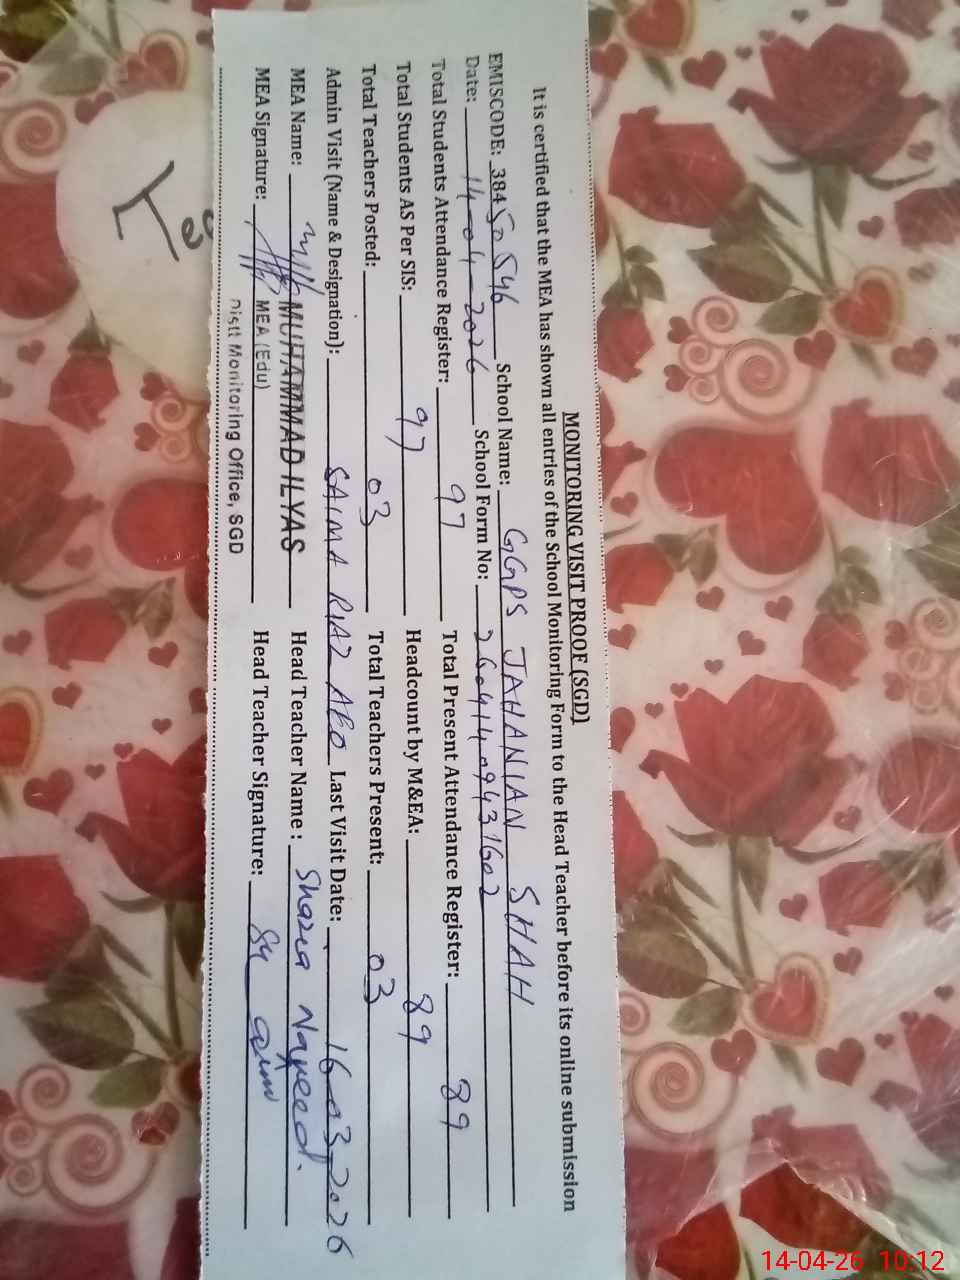 MONITORING VISIT PROOF (SGD)
It is certified that the MEA has shown all entries of the School Monitoring Form to the Head Teacher before its online submission
EMISCODE: 38450546 School Name: GGPS JAHANIAN SHAH
Date: 14-04-2026 School Form No: 26041409431602
Total Students Attendance Register: 97 Total Present Attendance Register: 89
Total Students AS Per SIS: 97 Headcount by M&EA: 89
Total Teachers Posted: 03 Total Teachers Present: 03
Admin Visit (Name & Designation): SAIMA RIAZ AEO Last Visit Date: 16-03-2026
MEA Name: MUHAMMAD ILYAS Head Teacher Name : Shazia Naveed.
MEA Signature: MEA (Edu) Head Teacher Signature:
Distt Monitoring Office, SGD
14-04-26 10:12